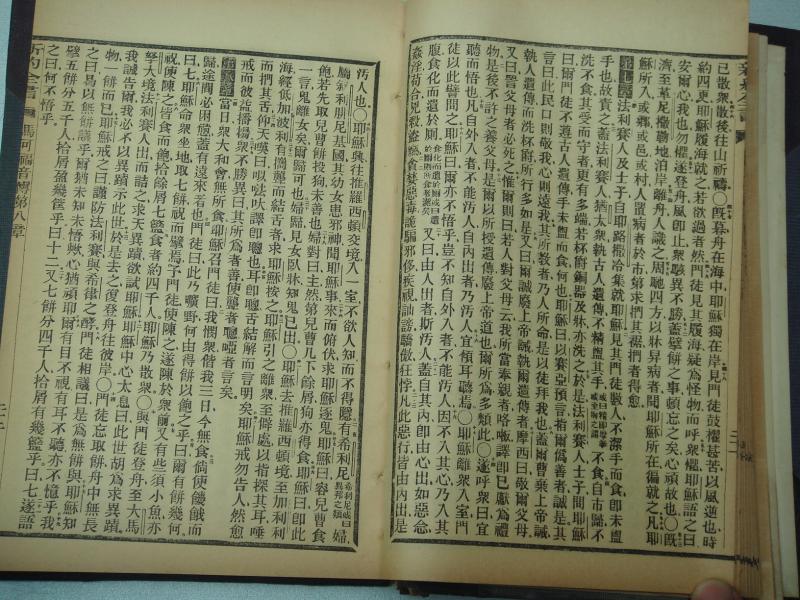 已散衆散後往山祈禱○旣暮舟在海中耶穌獨在岸見門徒鼓櫂甚苦以風逆也時
約四更耶穌履海就之若欲過者然門徒見其履海疑爲怪物而呼衆懼耶穌語之曰
安爾心我也勿懼遂登舟風卽止衆駭異不勝蓋擘餠之事頓忘之矣心頑故也○旣
濟至革尼撒勒地泊岸離舟人識之周馳四方以牀舁病者聞耶穌所在徧就之凡耶
穌所入或鄉或邑或村人置病者於市第求捫其裾捫者得愈
第七章 法利賽人及士子自耶路撒冷集就耶穌見其門徒數人不潔手而食卽未盥
手也故責之蓋法利賽人猶太衆執古人遺傳不精盥其手不食自市歸不
洗不食其受而守者更有多端若杯餠銅器及牀亦洗之於是法利賽人士子問耶穌
曰爾門徒不遵古人遺傳手未盥而食何也耶穌曰以賽亞預言指爾僞善者誠是其
言曰此民口則敬我心則遠我其所教者乃人所命是以徒拜我也蓋爾曹棄上帝誡
執人遺傳而洗杯餠所行多如是又曰爾誠廢上帝誡執爾遺傳者摩西曰敬爾父母
又曰詈父母者必死之惟爾則曰若人對父母云我所當奉親者咯嘞譯卽已獻爲禮
物是後不許之養父母是爾以所授遺傳廢上帝道也爾所爲多類此○遂呼衆曰宜
聽而悟也凡自外入者不能汚人自內出者乃汚人宜傾耳聽焉○耶穌離衆入室門
徒以此譬問之耶穌曰爾亦不悟乎豈不知自外入者不能汚人因不入其心乃入其
腹食化而遺於厠又曰由人出者斯汚人蓋自其內卽由心出如惡念
姦淫苟合兇殺盜竊貪婪惡毒詭騙邪侈疾視訕謗驕傲狂悖凡此惡行皆由內出是
汚人也○耶穌興往推羅西頓交境入一室不欲人知而不得隱有希利尼婦
敘利腓尼基國其幼女患邪神聞耶穌事來而俯伏求耶穌逐鬼耶穌曰容兒曹食
飽若先取兒曹餠投狗未善也婦對曰主然第兒曹几下餘屑狗亦得食耶穌曰卽此
一言鬼離女矣爾歸可也婦歸見女臥牀知鬼已出○耶穌去推羅西頓境至加利利
海經低加波利有攜聾而結舌者求耶穌按之耶穌引之離衆至僻處以指探其耳唾
而捫其舌仰天嘆曰以法大譯卽聰也耳卽聰舌結解而言明矣耶穌戒勿告人然愈
戒而彼愈播揚衆不勝異曰其所爲者善使聾者聰啞者言矣
第八章 當日衆大和會無所食耶穌召門徒曰我憫衆偕我三日今無食倘使饑餓而
歸途間必困憊蓋有遠來者也門徒曰此乃曠野何由得餠以飽之乎曰爾有餠幾何
曰七耶穌命衆坐地取七餠祝而擘焉予門徒使陳之遂陳於衆前又有些須小魚亦
祝使陳之皆食而飽拾餘屑七籃食者約四千人耶穌乃散衆○與門徒登舟至大馬
拏大境法利賽人出而詰之求天異蹟欲試耶穌耶穌中心太息曰此世胡爲求異蹟
我誠告爾我必不以異蹟示此世於是去之復登舟往彼岸○門徒忘取餠舟中無長
物一餠而已耶穌戒之曰謹防法利賽與希律之酵門徒相議曰是爲無餠與耶穌知
之曰曷以無餠議乎爾猶未知未悟歟心猶頑耶爾有目不視有耳不聽亦不憶乎我
擘五餠分五千人拾屑盈幾筐乎曰十二又七餠分四千人拾屑有幾籃乎曰七遂語
之曰何不悟乎
新約全書 馬可福音傳第八章